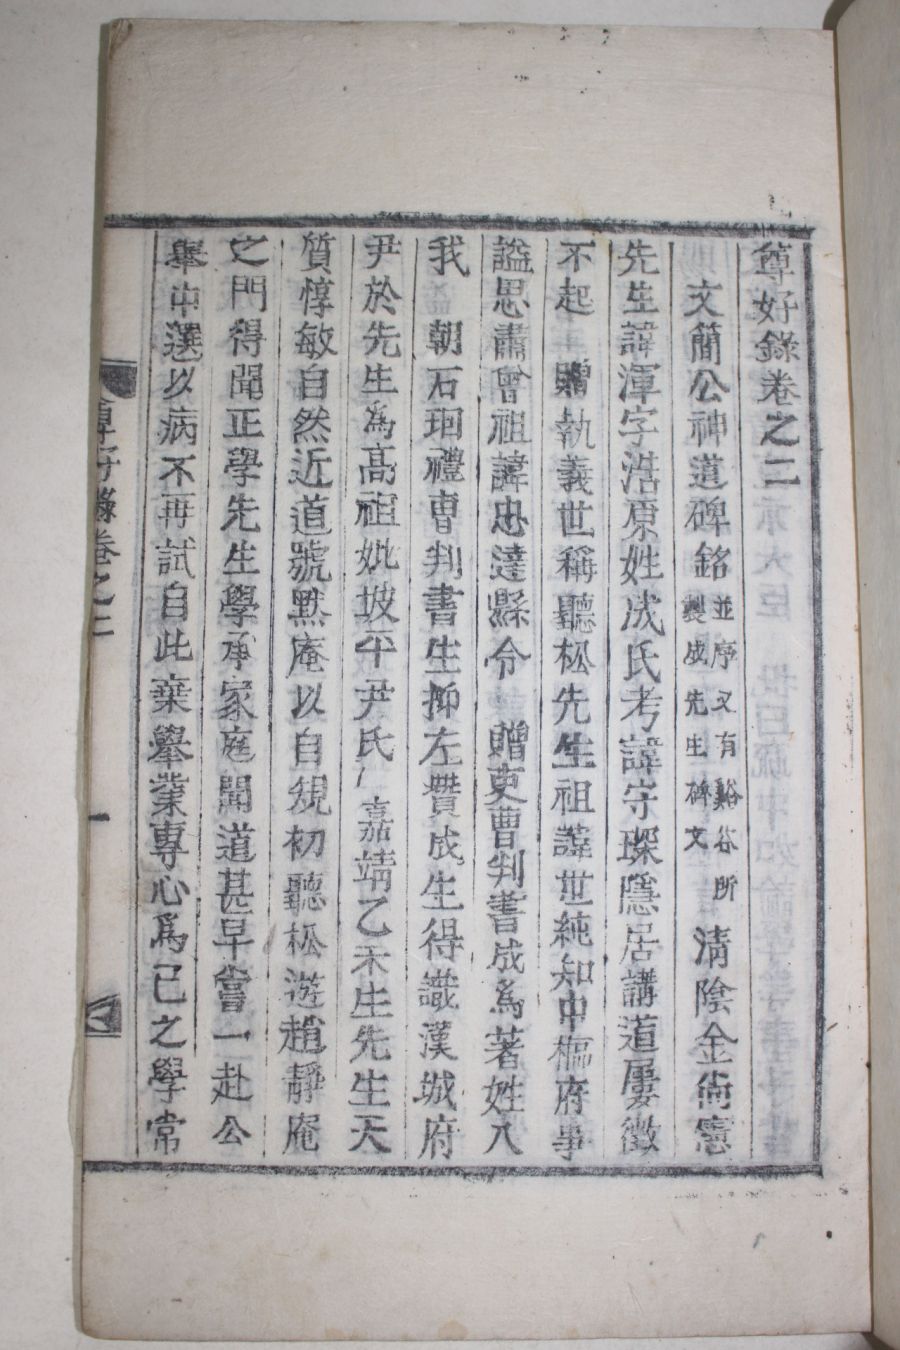 尊好錄卷之二
文簡公神道碑銘 並序又有谿谷所製成先生碑文 淸陰金尙憲
先生諱渾字浩原姓成氏考諱守琛隱居講道屢徵
不起 贈執義世稱聽松先生祖諱世純知中樞府事
謚思肅曾祖諱忠達縣令 贈吏曹判書成爲著姓入
我 朝石珚禮曹判書生抑左贊成生得識漢城府
尹於先生爲高祖妣坡平尹氏 嘉靖乙未生先生天
質惇敏自然近道號黙庵以自規初聽松遊趙靜庵
之門得聞正學先生學承家庭聞道甚早嘗一赴公
擧中選以病不再試自此棄擧業專心爲己之學常
尊好錄卷之二
一